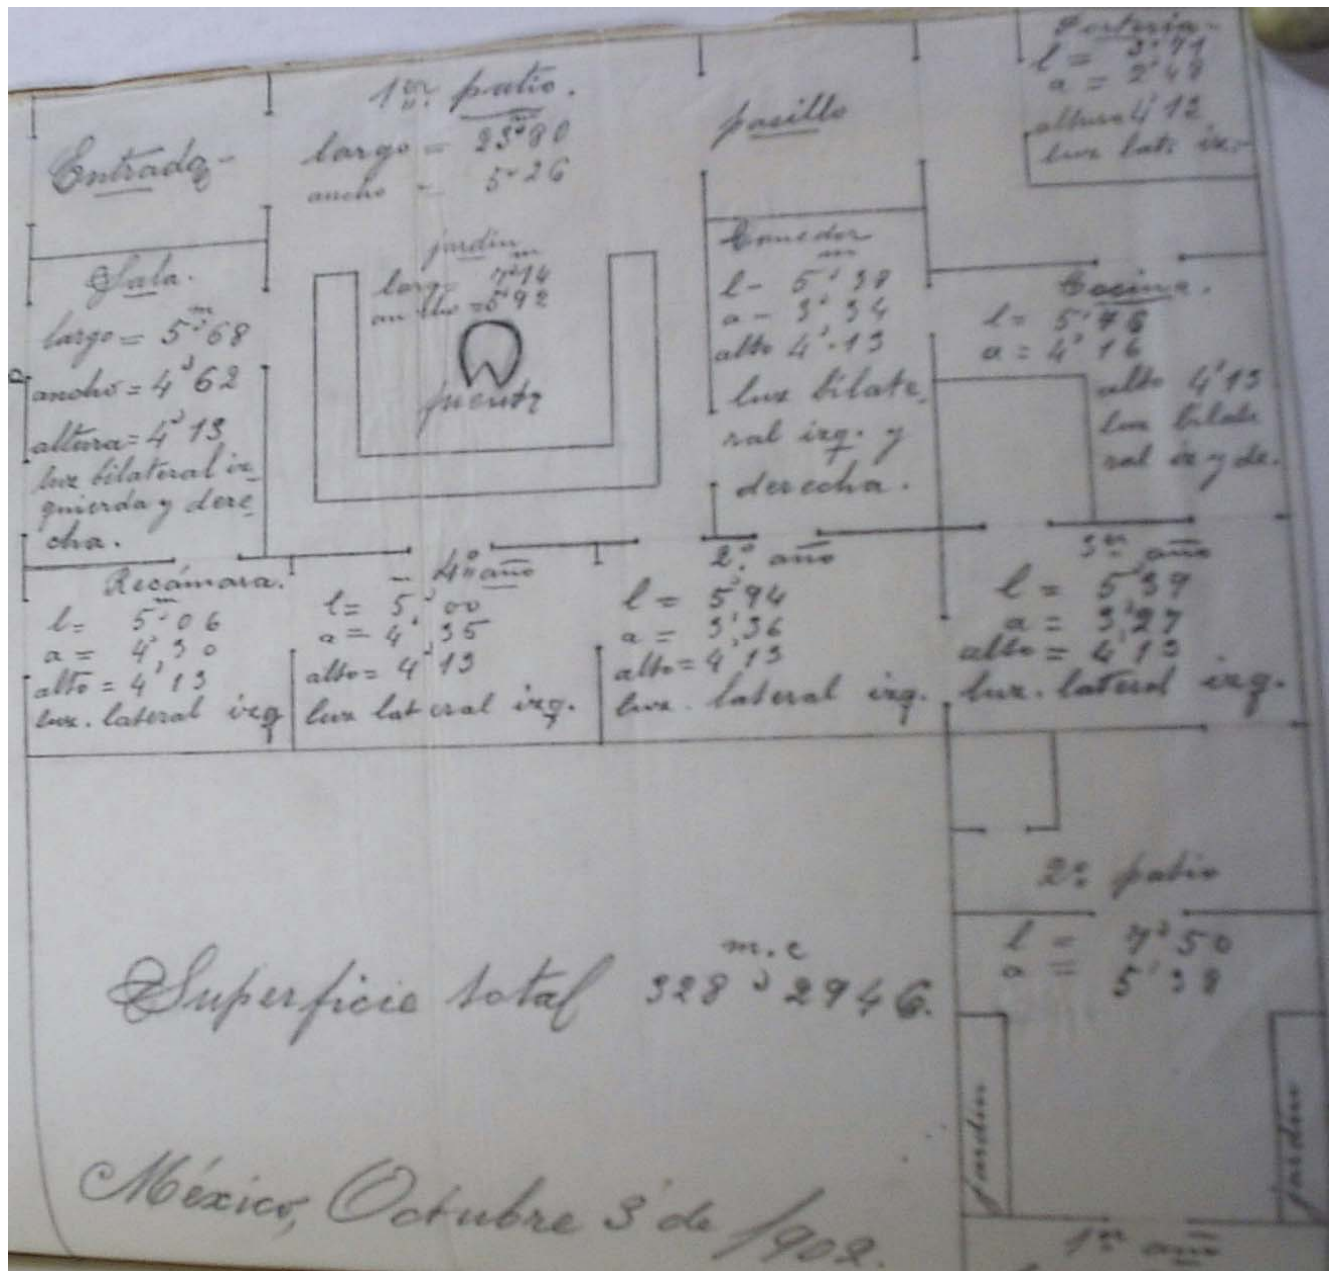 Entrada-
1er. patio.
largo = 23m80
ancho - 5"26
pasillo
Portería-
l = 3'71
a = 2'48
altura 4'12
luz lat. iz.-
Sala.
largo = 5m,68
ancho = 4,62
altura = 4,13
luz bilateral iz-
quierda y dere-
cha.
jardin
larg = 7m,14
ancho = 5,92
fuente
Comedor
l - 5m,38
a - 3,34
alto 4,13
luz bilate-
ral izq. y
derecha.
Cocina.
l = 5,76
a = 4,16
alto 4,13
luz bilate
ral iz y de.
Recámara.
l = 5m,06
a = 4,30
alto = 4,13
luz. lateral izq
4o año
l = 5,00
a = 4,35
alto = 4,13
luz lateral izq.
2o. año
l = 5,94
a = 3,36
alto = 4,13
luz. lateral izq.
3er año
l = 5,39
a = 3,27
alto = 4,13
luz. lateral izq.
2o patio
l = 7,50
a = 5,38
Superficie total 328 m.c, 2946.
jardin
jardin
México, Octubre 3 de 1902.
1er año